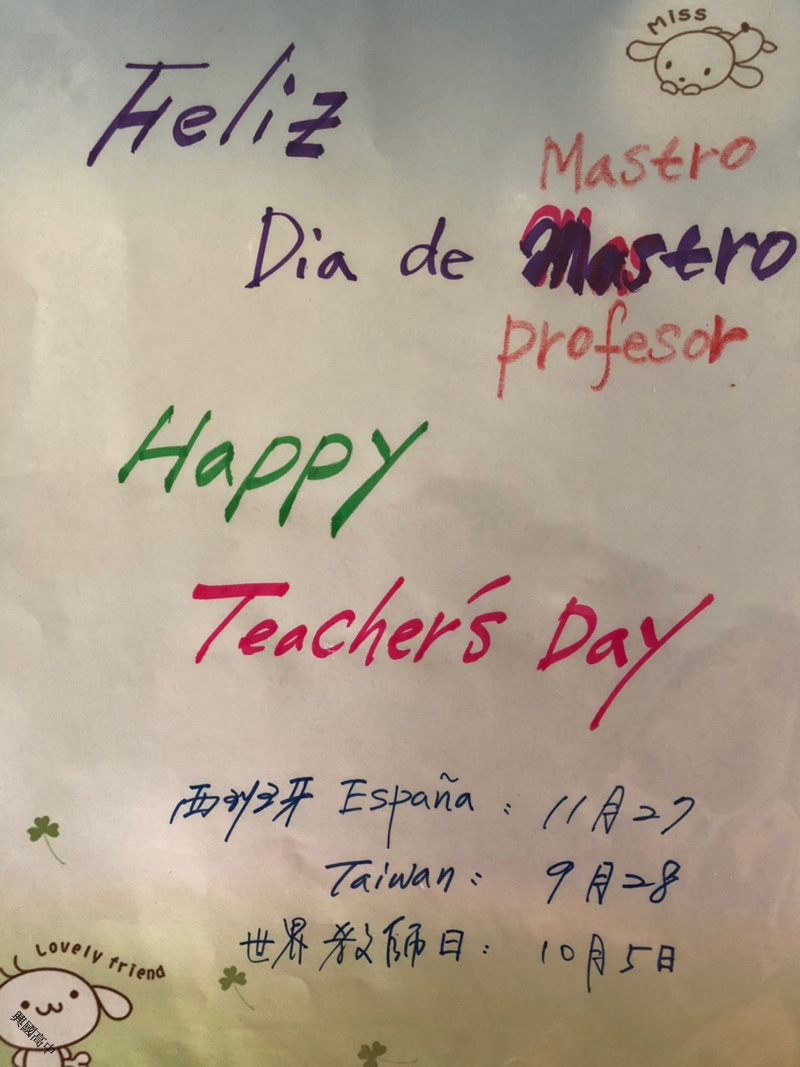 Miss
Feliz
Mastro
Dia de Mastro
profesor
Happy
Teacher's Day
西班牙 España : 11月27
Taiwan : 9月28
世界教師日 : 10月5日
Lovely friend
興國高中